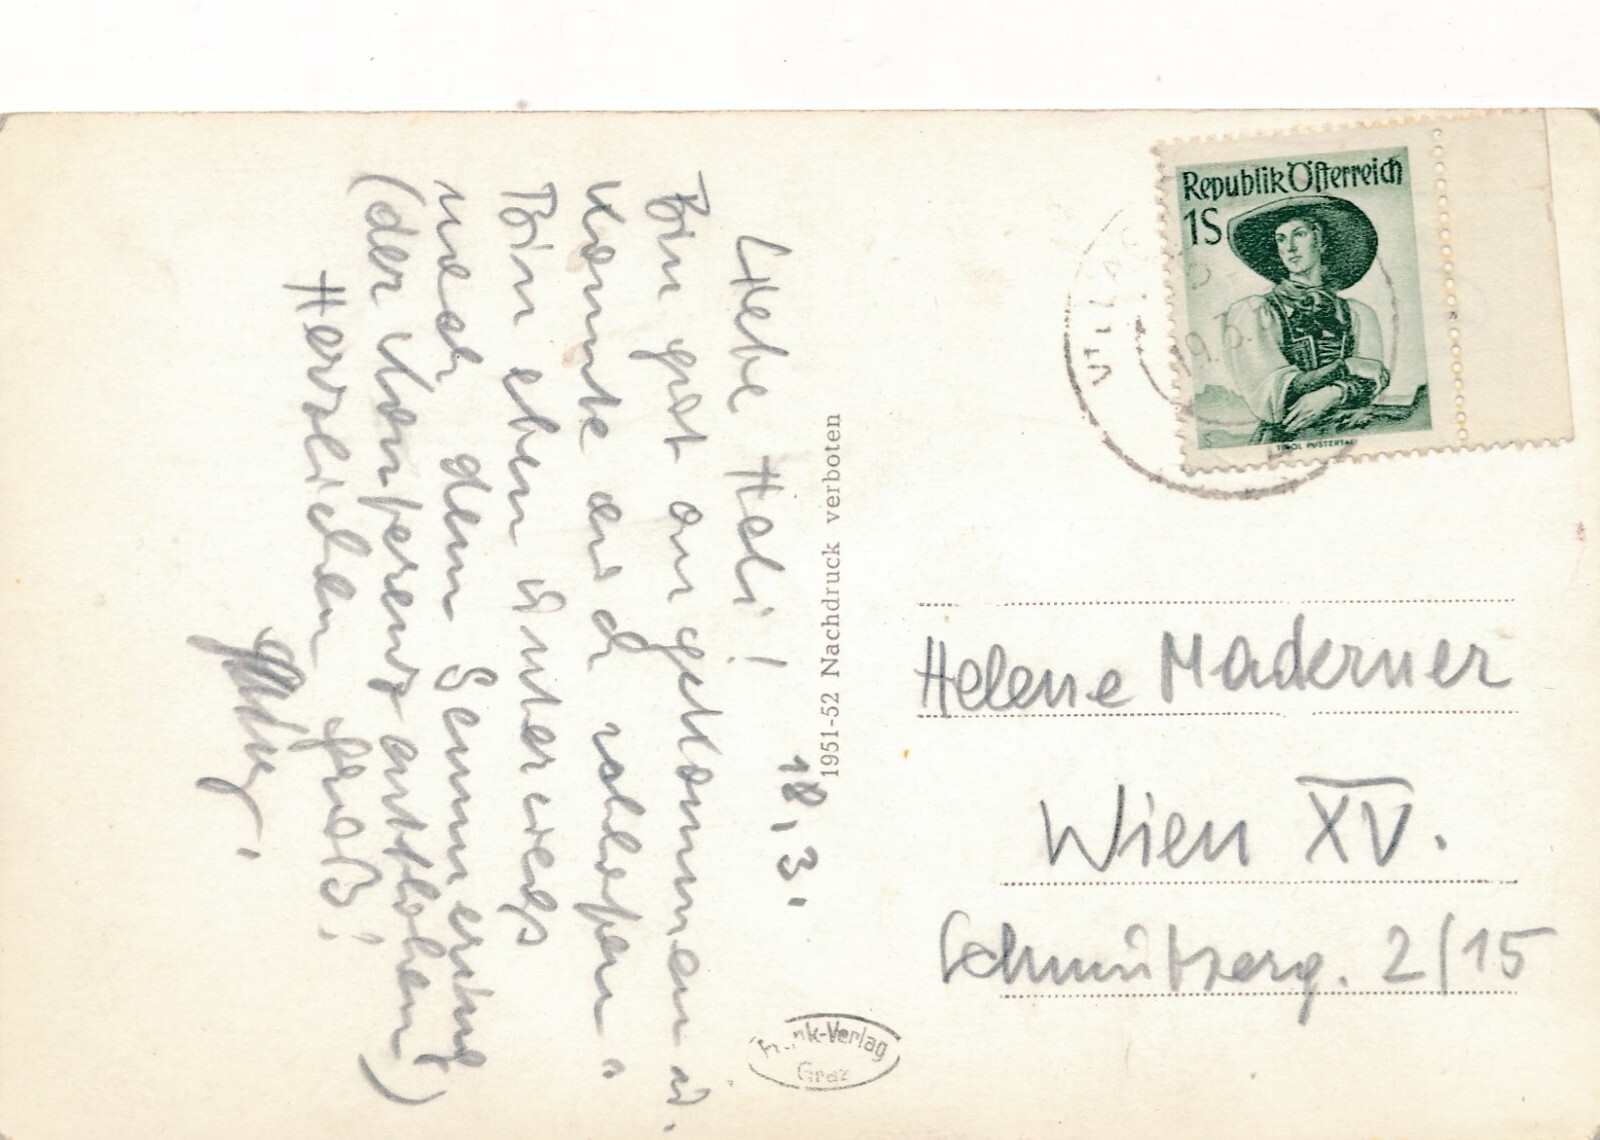 18.3.
Liebe Heli!
Bin gut angekommen u.
konnte auch schlafen.
Bin eben unterwegs
nach dem Seminar
(der Konferenz entflohen)
Herzlichen Gruß!
1951-52 Nachdruck verboten
Frank-Verlag
Graz
Republik Österreich
1S
TIROL PUSTERTAL
VILLAC
19.3.
Helene Maderner
Wien XV.
Schmutzerg. 2/15